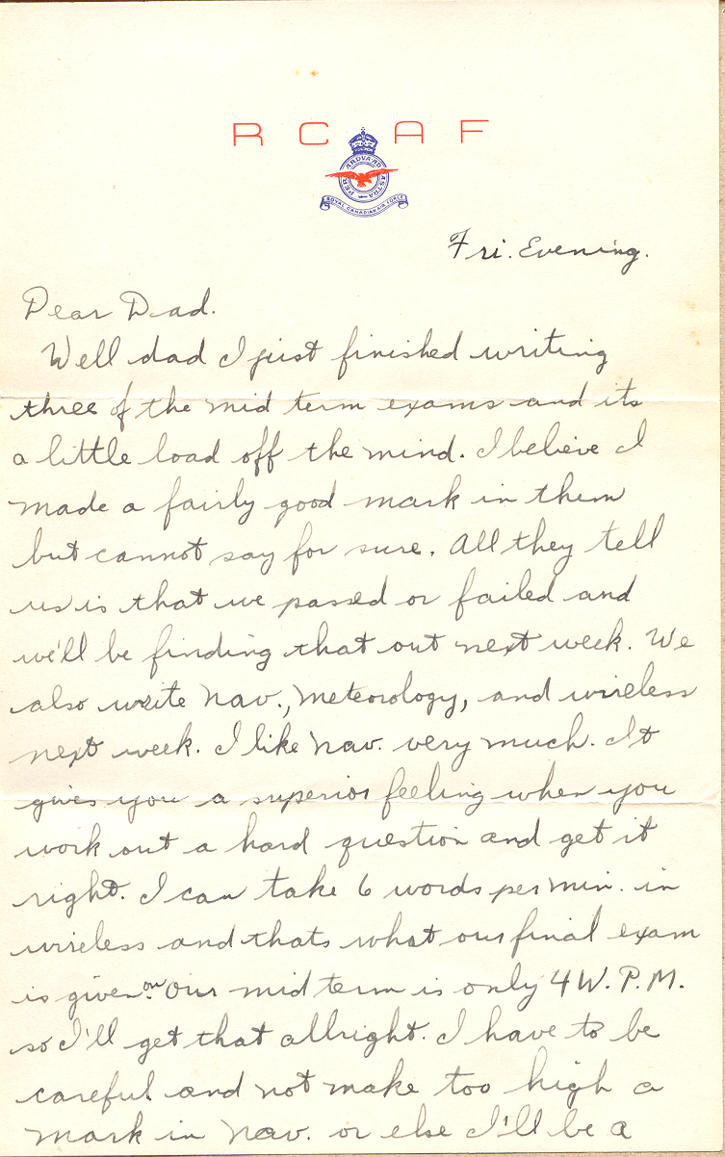 R C A F
PER ARDVA AD ASTRA
ROYAL CANADIAN AIR FORCE
Fri. Evening.
Dear Dad.
Well dad I just finished writing
three of the mid term exams and its
a little load off the mind. I believe I
made a fairly good mark in them
but cannot say for sure. All they tell
us is that we passed or failed and
we'll be finding that out next week. We
also write Nav., Meteorology, and wireless
next week. I like Nav. very much. It
gives you a superior feeling when you
work out a hard question and get it
right. I can take 6 words per min. in
wireless and thats what our final exam
is given on. Our mid term is only 4 W. P. M.
so I'll get that allright. I have to be
careful and not make too high a
mark in Nav. or else I'll be a